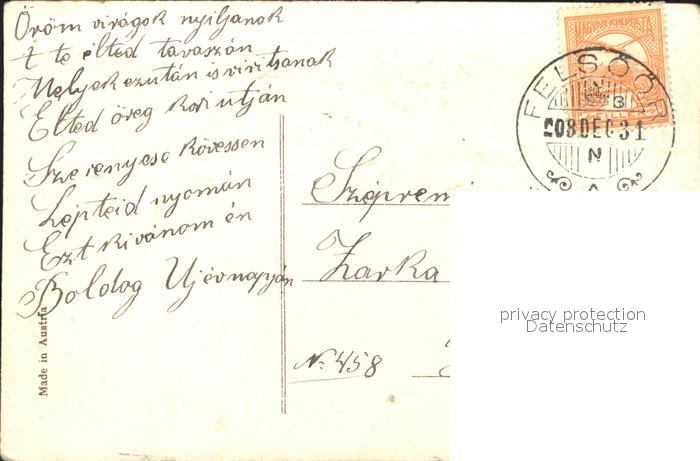 Öröm virágok nyiljanak
A te élted tavaszán
Melyek ezután is virítsanak
Élted öreg kori utján
Szerenycse kövessen
Lépteid nyomán
Ezt kivánom én
Boldog Ujévnapján
Made in Austria
MAGYAR KIR. POSTA
FELSŐŐR
N 3
908 DEC 31
N
A
Zarka
No 458
privacy protection
Datenschutz